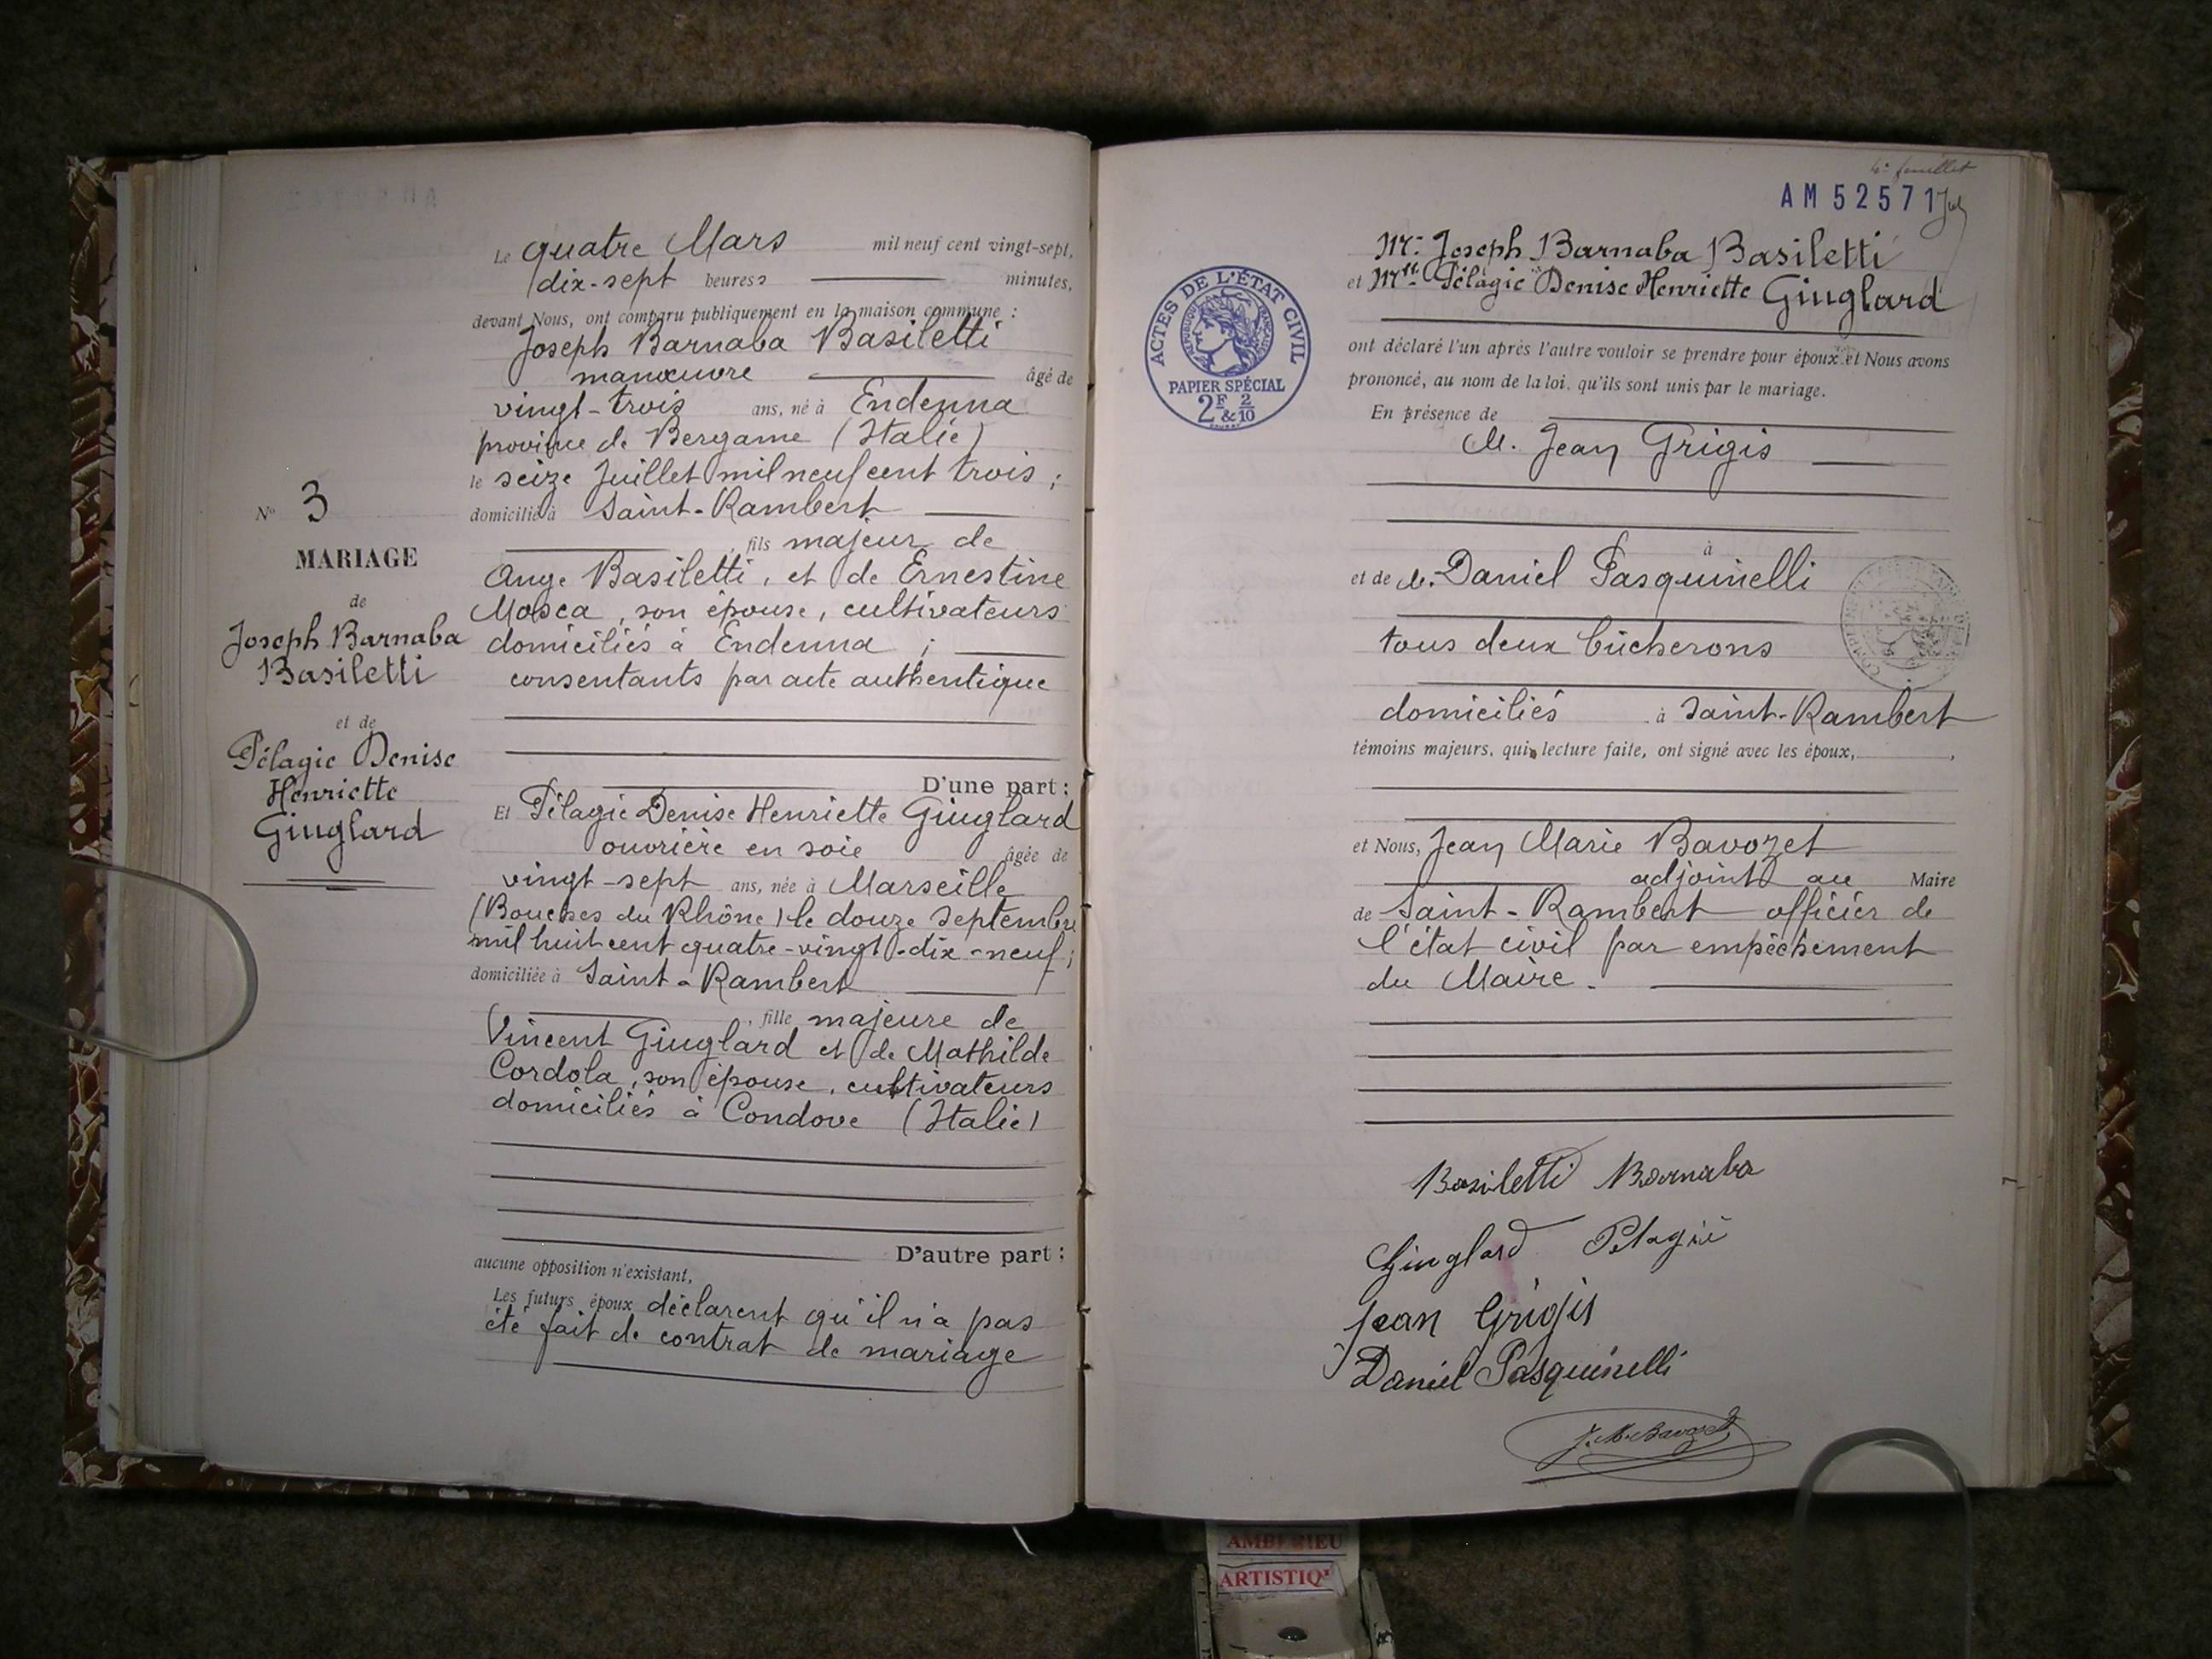 N° 3
MARIAGE
de
Joseph Barnaba
Basiletti
et de
Pélagie Denise
Henriette
Giuglard
Le quatre Mars mil neuf cent vingt-sept,
dix-sept heures minutes,
devant Nous, ont comparu publiquement en la maison commune :
Joseph Barnaba Basiletti
manœuvre âgé de
vingt-trois ans, né à Endenna
province de Bergame (Italie)
le seize Juillet mil neuf cent trois ;
domicilié à Saint-Rambert
, fils majeur de
Ange Basiletti, et de Ernestine
Mosca, son épouse, cultivateurs
domiciliés à Endenna ;
consentants par acte authentique
D'une part :
Et Pélagie Denise Henriette Giuglard
ouvrière en soie âgée de
vingt-sept ans, née à Marseille
(Bouches du Rhône) le douze septembre
mil huit cent quatre-vingt-dix-neuf ;
domiciliée à Saint-Rambert
, fille majeure de
Vincent Giuglard et de Mathilde
Cordola, son épouse, cultivateurs
domiciliés à Condove (Italie)
D'autre part :
aucune opposition n'existant,
Les futurs époux déclarent qu'il n'a pas
été fait de contrat de mariage
4e feuillet
AM 52571
ACTES DE L'ÉTAT CIVIL
RÉPUBLIQUE FRANÇAISE
PAPIER SPÉCIAL
2F & 2/10
Mr. Joseph Barnaba Basiletti
et Mlle. Pélagie Denise Henriette Giuglard
ont déclaré l'un après l'autre vouloir se prendre pour époux et Nous avons
prononcé, au nom de la loi, qu'ils sont unis par le mariage.
En présence de
M. Jean Grigis
à
et de M. Daniel Pasquinelli
tous deux bûcherons
domiciliés à Saint-Rambert
témoins majeurs, qui, lecture faite, ont signé avec les époux, ,
et Nous, Jean Marie Bavozet
adjoint au Maire
de Saint-Rambert officier de
l'état civil par empêchement
du Maire.
Basiletti Barnaba
Giuglard Pelagie
Jean Grigis
Daniel Pasquinelli
J. M. Bavozet
AMBERIEU
ARTISTIQ